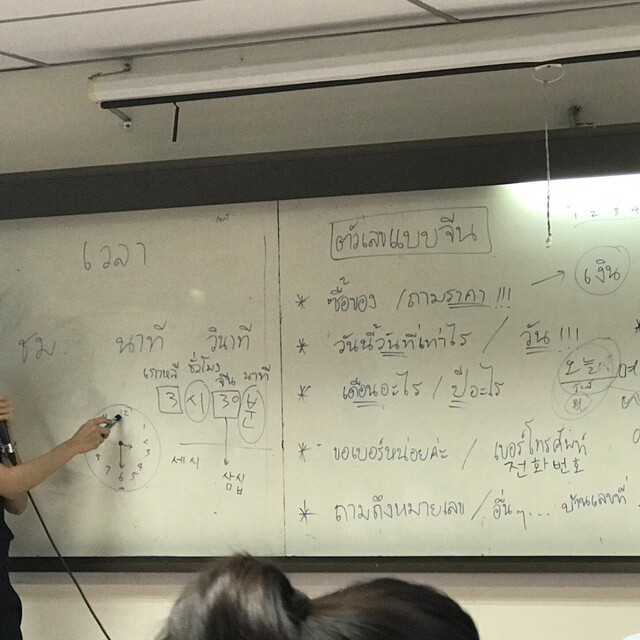 เวลา
ชม. นาที วินาที
เกาหลี ชั่วโมง จีน นาที
3 시 30 분
세시
삼십
1
2
3
4
5
6
7
1 2 3 4
ตัวเลขแบบจีน
* ซื้อของ /ถามราคา !!! → เงิน
* วันนี้วันที่เท่าไร / วัน !!!
* เดือนอะไร / ปีอะไร
오늘
* ขอเบอร์หน่อยค่ะ / เบอร์โทรศัพท์
전화번호
* ถามถึงหมายเลข / อื่นๆ.... บ้านเลขที่